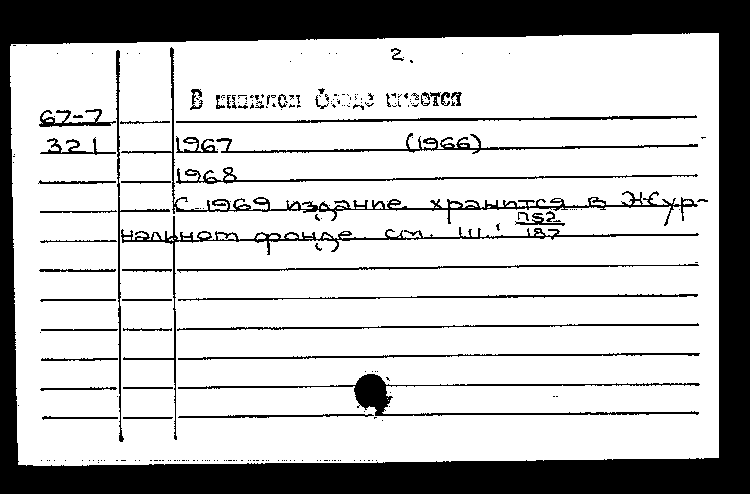 2.
В книжном фонде имеется
67-7
321 1967 (1966)
1968
С 1969 издание хранится в Жур-
нальном фонде см. Ш.: П52/187